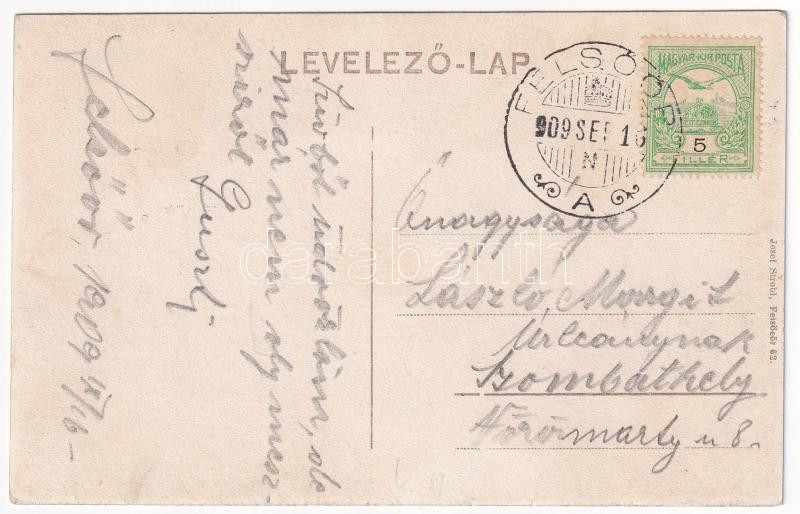 LEVELEZŐ-LAP
FELSŐŐR
909 SEP 16
N
A
MAGYAR KIR. POSTA
5
FILLÉR
Felsőőr, 1909 IX/16 –
Szívből üdvözlöm, de
már nem oly messziről
Guszti
Őnagysága
László Margit
Úrleánynak
Szombathely
Vörösmarty u 8.
Josef Strobl, Felsőeőr 62.
darabanth